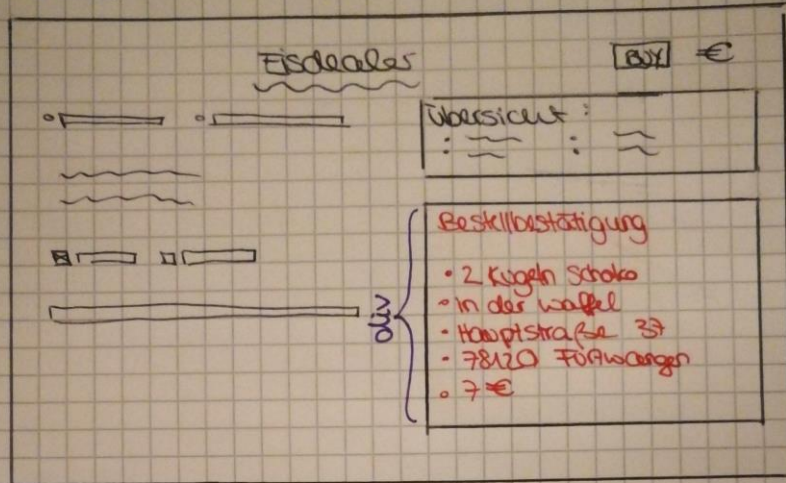 Eisdealer
BUY €
Übersicht:
Bestellbestätigung
• 2 Kugeln Schoko
• in der Waffel
• Hauptstraße 37
• 78120 Furtwangen
• 7 €
div